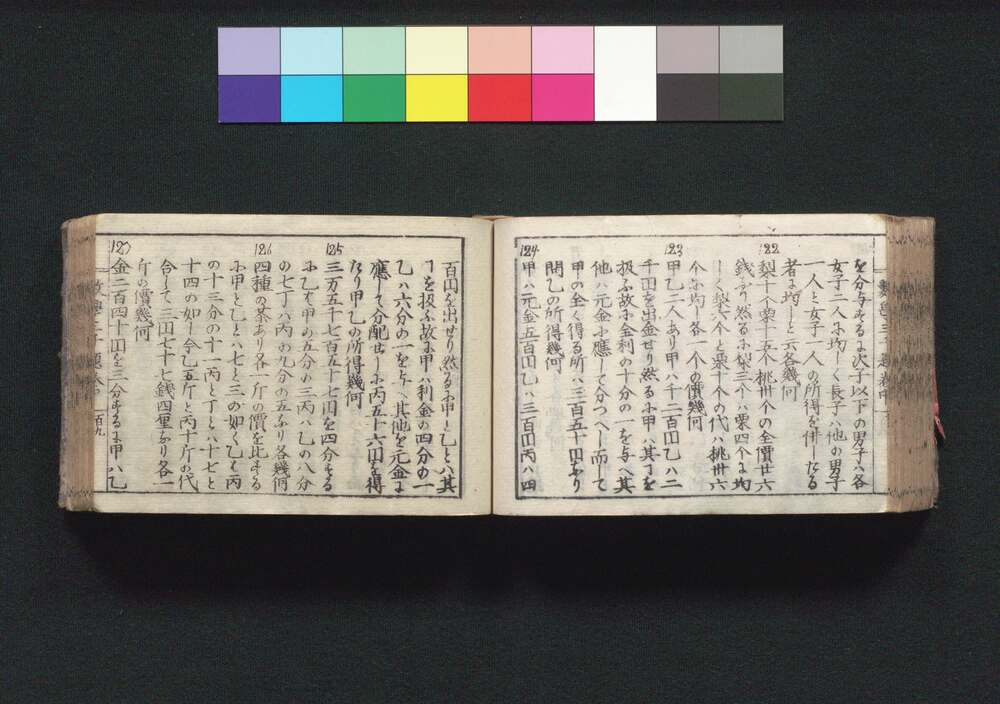 を分与するに次子以下の男子ハ各
女子二人に均しく長子ハ他の男子
一人と女子一人の所得を併したる
者に均しと云各幾何
122
梨十个栗十五个桃卅个の全價廿六
銭なり然るに梨三个ハ栗四个に均
しく梨六个と栗十个の代ハ桃卅六
个に均し各一个の價幾何
123
甲乙二人あり甲ハ千二百円乙ハ二
千円を出金せり然るに甲ハ其丁を
扱ふ故に金利の十分の一を与へ其
他ハ元金に應して分つへし而して
甲の全く得る所ハ三百五十円なり
問乙の所得幾何
124
甲ハ元金五百円乙ハ三百円丙ハ四
百円を出せり然るに甲と乙とハ其
丁を扱ふ故に甲ハ利金の四分の一
乙ハ六分の一を与へ其他を元金に
應して分配せしに丙五十六円を得
たり甲乙の所得幾何
125
三万五千七百五十七円を四分する
に乙ハ甲の五分の三丙ハ乙の八分
の七丁ハ丙の九分の五なり各幾何
126
四種の茶あり各一斤の價を比する
に甲と乙とハ七と三の如く乙と丙
の十三分の十一丙と丁とハ十七と
十四の如し今乙五斤と丙十斤の代
合して三円七十七銭四厘なり各一
斤の價幾何
127
金二百四十円を三分するに甲ハ乙
百九